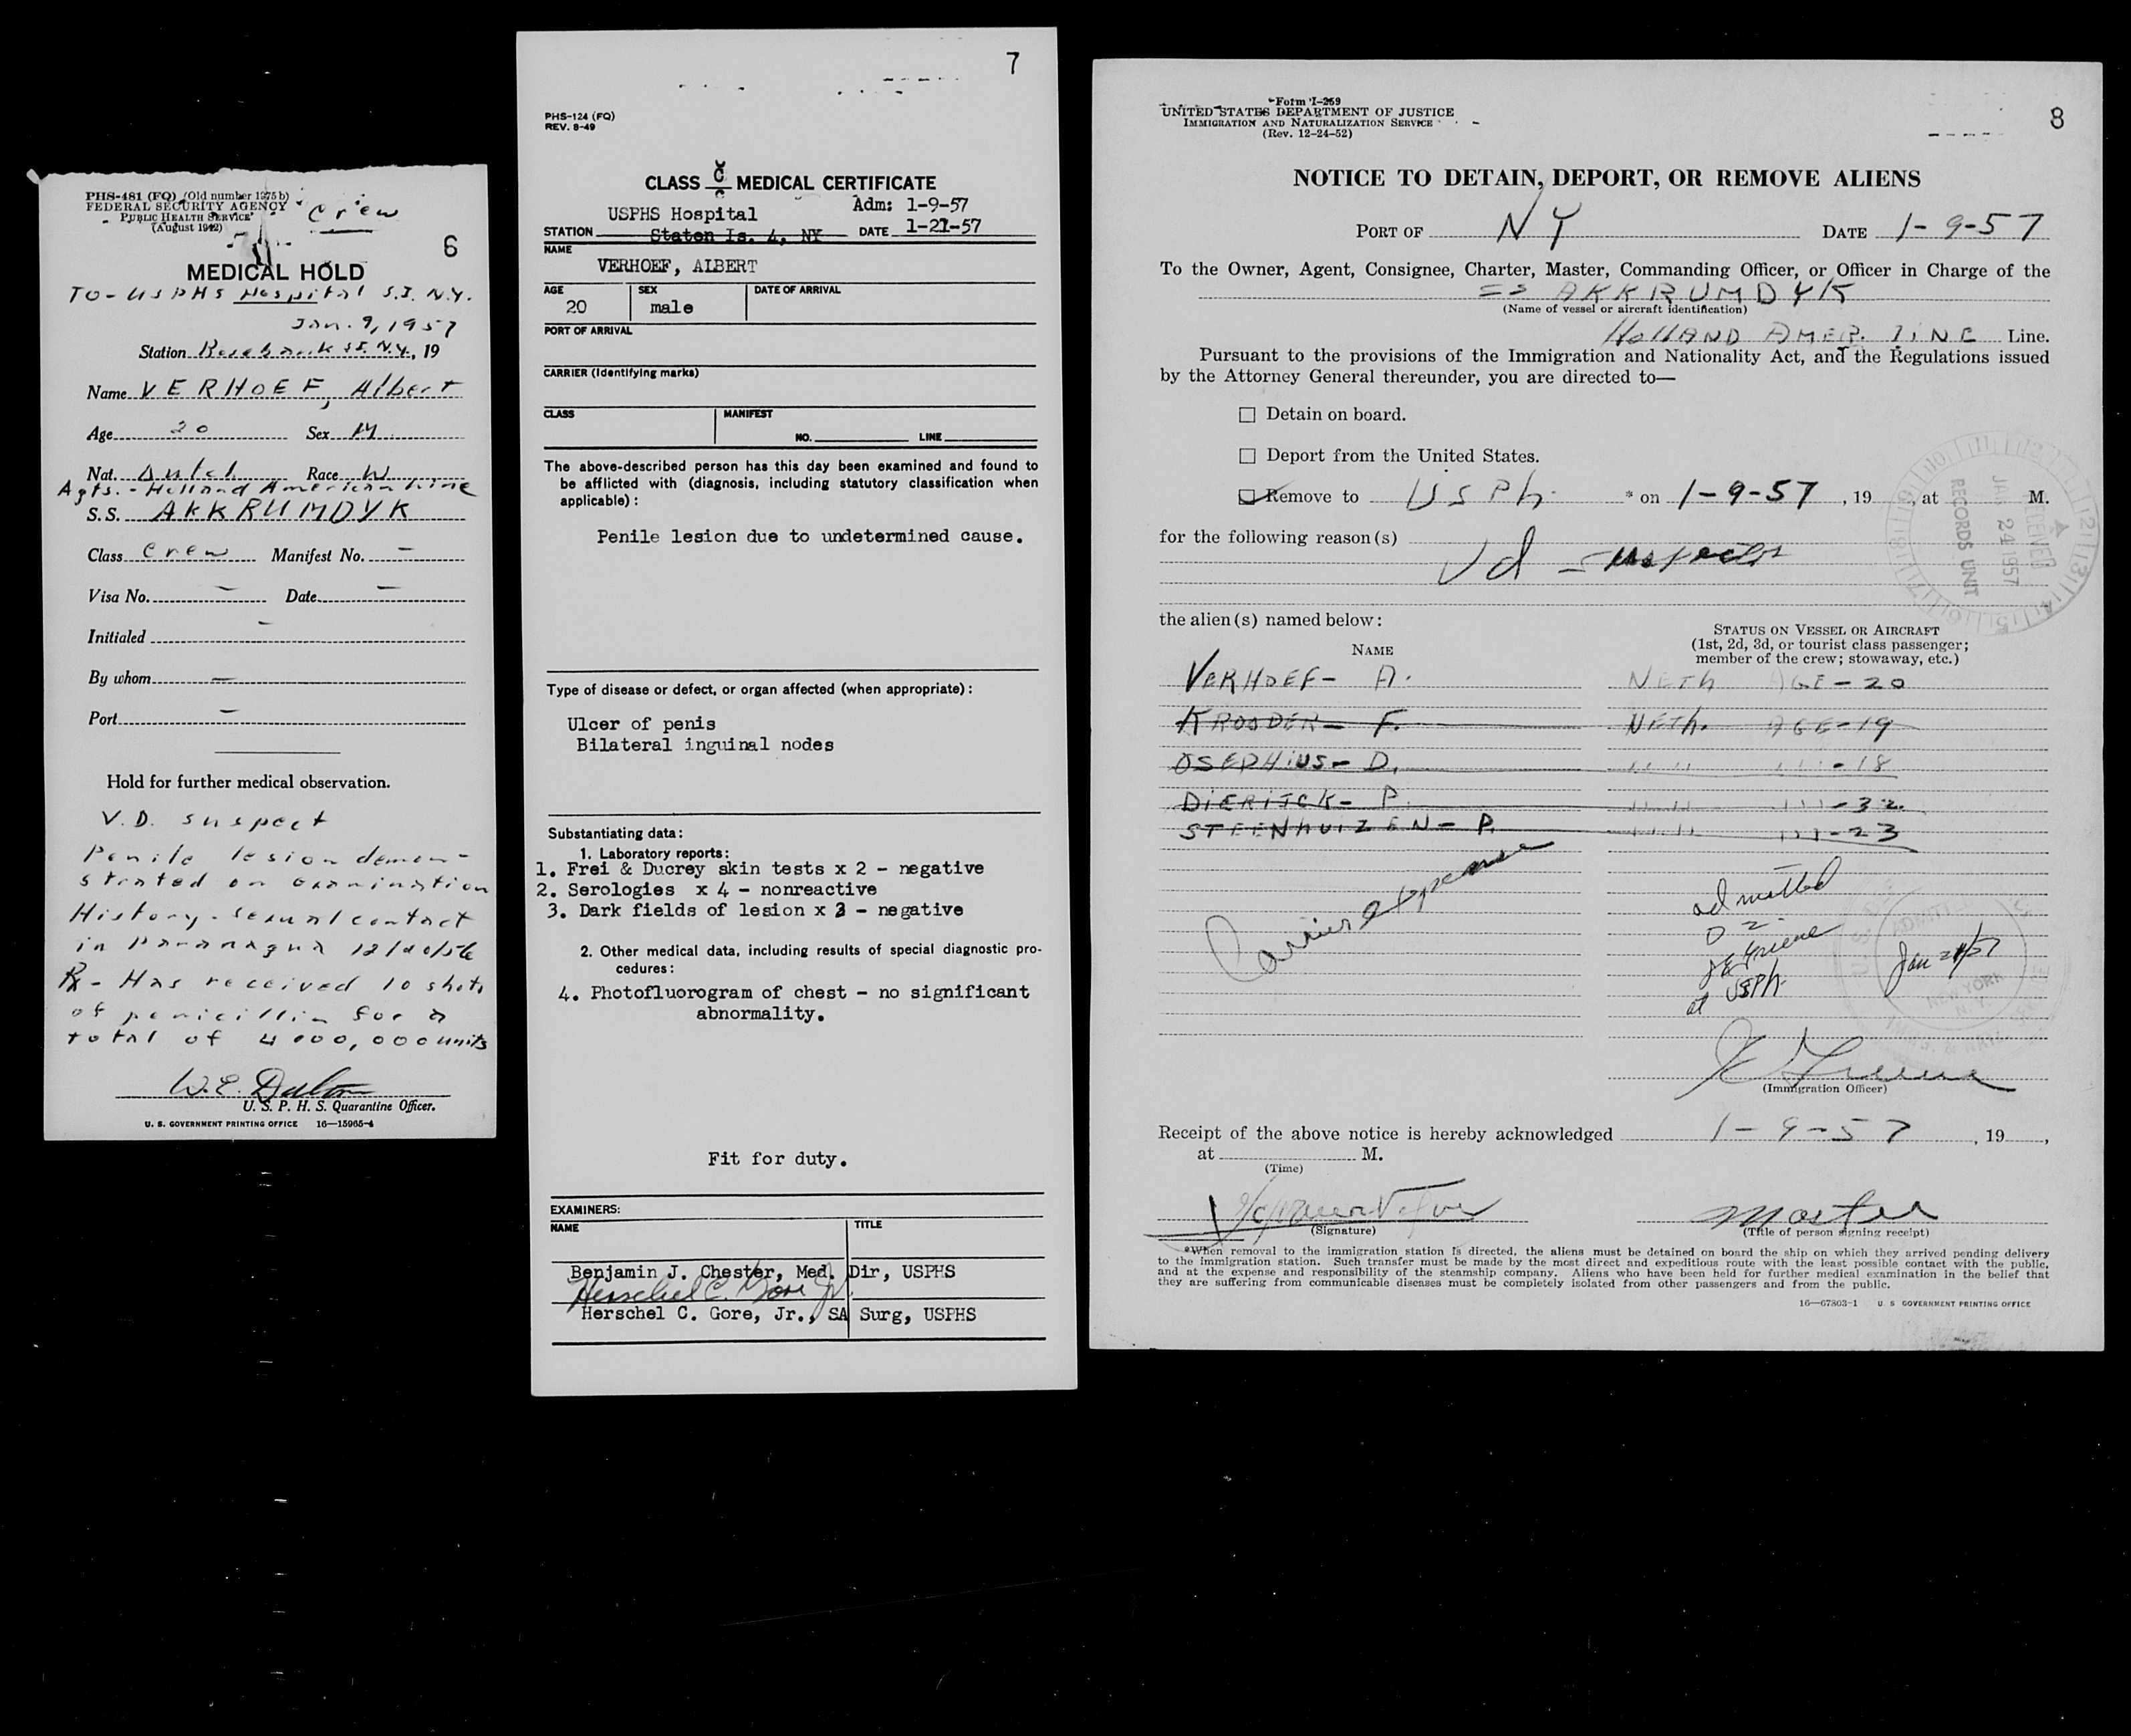 PHS-481 (FQ) (Old number 1375b)
FEDERAL SECURITY AGENCY
PUBLIC HEALTH SERVICE
(August 1942)
Crew
6
MEDICAL HOLD
TO - USPHS Hospital S.I. N.Y.
Jan. 9, 1957
Station Rosebank S.I. N.Y., 19
Name VERHOEF, Albert
Age 20 Sex M
Nat. Dutch Race W
Agts. - Holland American Line
S.S. AKKRUMDYK
Class Crew Manifest No. —
Visa No. — Date —
Initialed —
By whom —
Port —
Hold for further medical observation.
V.D. suspect
Penile lesion demon-
strated on examination
History - sexual contact
in Paranagua 12/20/56
Rx - Has received 10 shots
of penicillin for a
total of 4000,000 units
W.E. Dalton
U. S. P. H. S. Quarantine Officer.
U. S. GOVERNMENT PRINTING OFFICE 16—15965-4
7
PHS-124 (FQ)
REV. 8-49
CLASS C MEDICAL CERTIFICATE
USPHS Hospital Adm: 1-9-57
STATION Staten Is. 4, NY DATE 1-21-57
NAME
VERHOEF, ALBERT
AGE SEX DATE OF ARRIVAL
20 male
PORT OF ARRIVAL
CARRIER (Identifying marks)
CLASS MANIFEST
NO. LINE
The above-described person has this day been examined and found to
be afflicted with (diagnosis, including statutory classification when
applicable):
Penile lesion due to undetermined cause.
Type of disease or defect, or organ affected (when appropriate):
Ulcer of penis
Bilateral inguinal nodes
Substantiating data:
1. Laboratory reports:
1. Frei & Ducrey skin tests x 2 - negative
2. Serologies x 4 - nonreactive
3. Dark fields of lesion x 3 - negative
2. Other medical data, including results of special diagnostic pro-
cedures:
4. Photofluorogram of chest - no significant
abnormality.
Fit for duty.
EXAMINERS:
NAME TITLE
Benjamin J. Chester, Med. Dir, USPHS
Herschel C. Gore Jr.
Herschel C. Gore, Jr., SA Surg, USPHS
8
Form I-259
UNITED STATES DEPARTMENT OF JUSTICE
IMMIGRATION AND NATURALIZATION SERVICE
(Rev. 12-24-52)
NOTICE TO DETAIN, DEPORT, OR REMOVE ALIENS
PORT OF NY DATE 1-9-57
To the Owner, Agent, Consignee, Charter, Master, Commanding Officer, or Officer in Charge of the
SS AKKRUMDYK
(Name of vessel or aircraft identification)
HOLLAND AMER. LINE Line.
Pursuant to the provisions of the Immigration and Nationality Act, and the Regulations issued
by the Attorney General thereunder, you are directed to—
Detain on board.
Deport from the United States.
Remove to USPh. * on 1-9-57, 19 , at M.
for the following reason(s)
Vd - suspects
RECEIVED
JAN 24 1957
RECORDS UNIT
the alien(s) named below:
NAME
STATUS ON VESSEL OR AIRCRAFT
(1st, 2d, 3d, or tourist class passenger;
member of the crew; stowaway, etc.)
VERHOEF - A. NETH AGE - 20
KROODER - F. NETH. AGE - 19
OSEPHIUS - D. " " " - 18
DIERITCK - P. " " " - 32
STEENHUIZEN - P. " " " - 23
Carriers expense
admitted
D 2
JE Griene
at USPh
ADMITTED
Jan 21/57
NEW YORK
N.Y.
(Immigration Officer)
Receipt of the above notice is hereby acknowledged 1-9-57, 19 ,
at M.
(Time)
(Signature)
Master
(Title of person signing receipt)
*When removal to the immigration station is directed, the aliens must be detained on board the ship on which they arrived pending delivery
to the immigration station. Such transfer must be made by the most direct and expeditious route with the least possible contact with the public,
and at the expense and responsibility of the steamship company. Aliens who have been held for further medical examination in the belief that
they are suffering from communicable diseases must be completely isolated from other passengers and from the public.
16—67803-1 U S GOVERNMENT PRINTING OFFICE